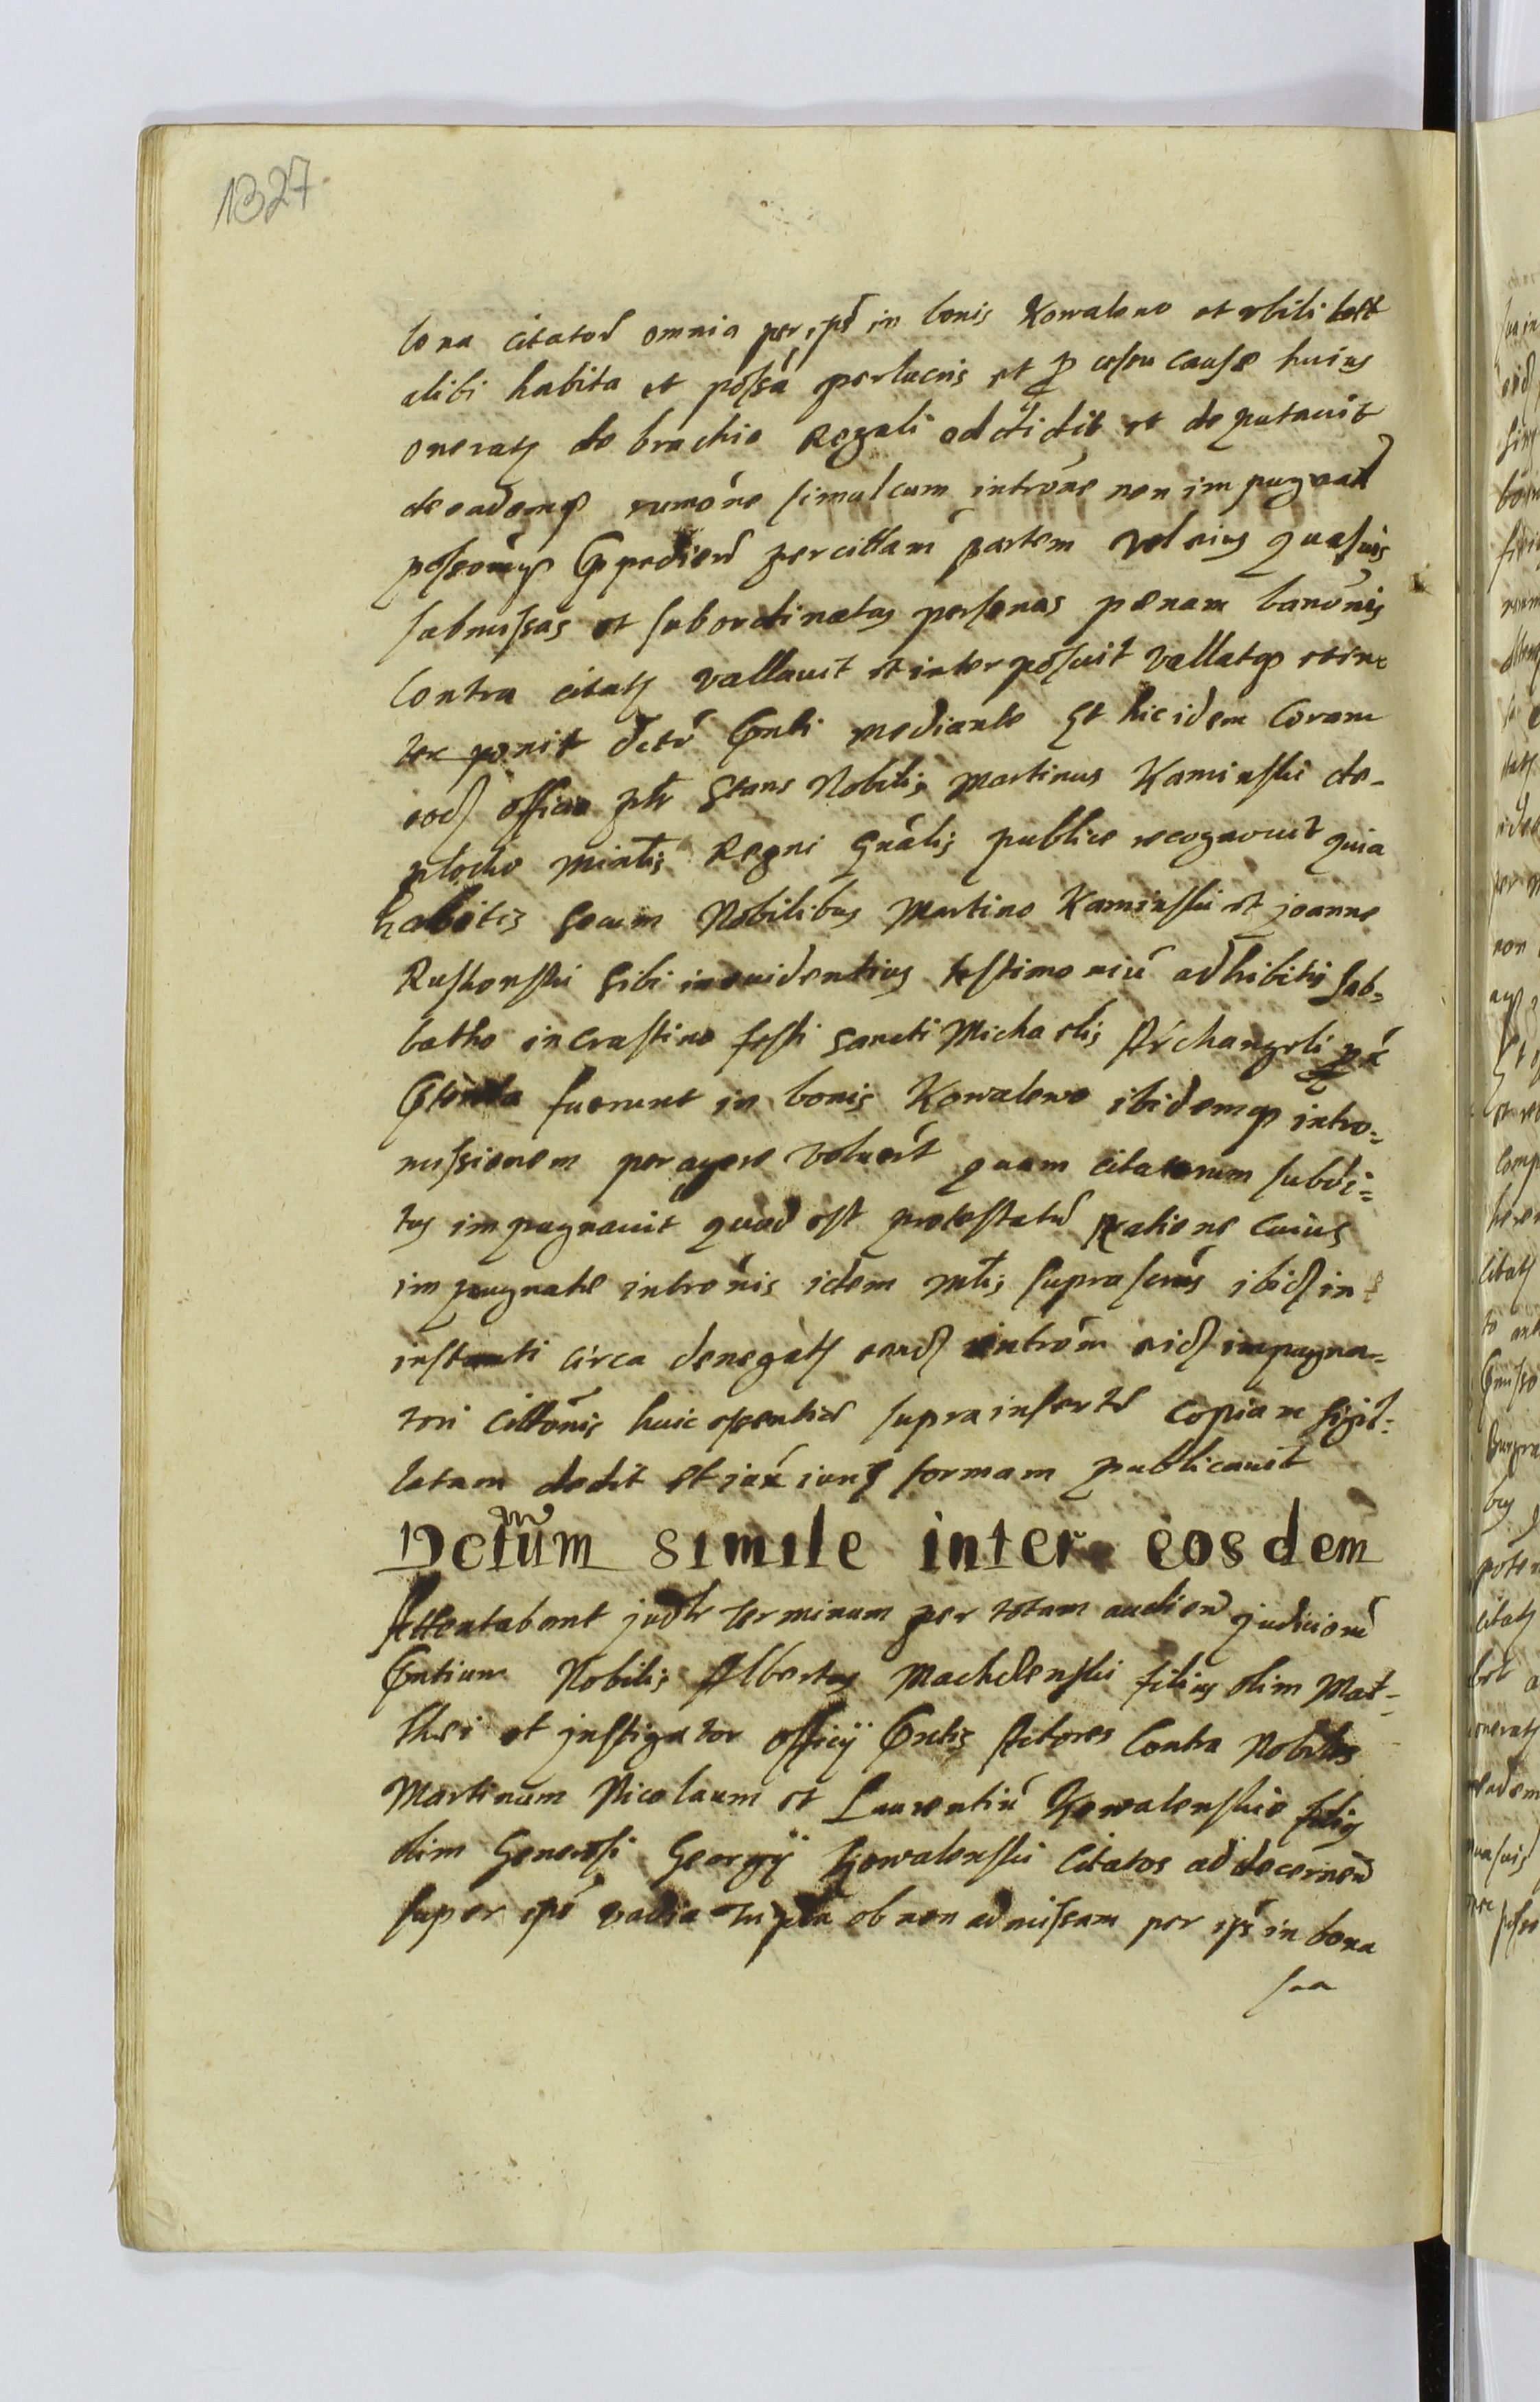 1327
bona citator omnia per ipsos in bonis Kowalewo et ubilibett
alibi habita et possa per lucris et p causae huius
onerats de brachio Regali addidit et deputavit
deeademq rumone simulcum introne non impugnad
posseomq Expediend per cittam partem vel eius quasuis
submissas et subordinatas personas poenam banonis
Contra citats vallavit et interposuit vallatq et in-
ter ponit Dcto Cnti mediante Et hic idem Coram
eods officio plr Stans Nobilis Martinus Kaminski de
plocko Mintis Regni Gnalis publice recognovit quia
habitis Secum Nobilibus Martino Kaminski et joanne
Rustonski Sibi in evidentius testimoniu adhibitis Sab-
batho in Crastino festi Sancti Michaelis Archangeli
fuerunt in bonis Kowalewo ibidemq intro-
missionem peragere voluerit quam citatorum subdi-
tus impugnavit quod est protestatus Ratione cuius
impugnate intronis idem Mtis suprascrius ibids in
instanti circa denegats eands introm eids impugna-
tori cittonis huic sententiae suprainserte copiam sigil-
latam dedit et iux iuris formam publicavit
Dctum simile inter eosdem
Attentabant judlr terminum per totam audien judicioru
Cntium Nobilis Albertus Machczenski filius olim Mat-
thei et justigator officy Cntis Actores Contra Nobiles
Martinum Nicolaum et Laurentiu Kowalenskie filios
olim Generosi Georgy Kowalenski Citatos ad decernend
super ipso vadia tripla ob non admissam per ips in bona
sua